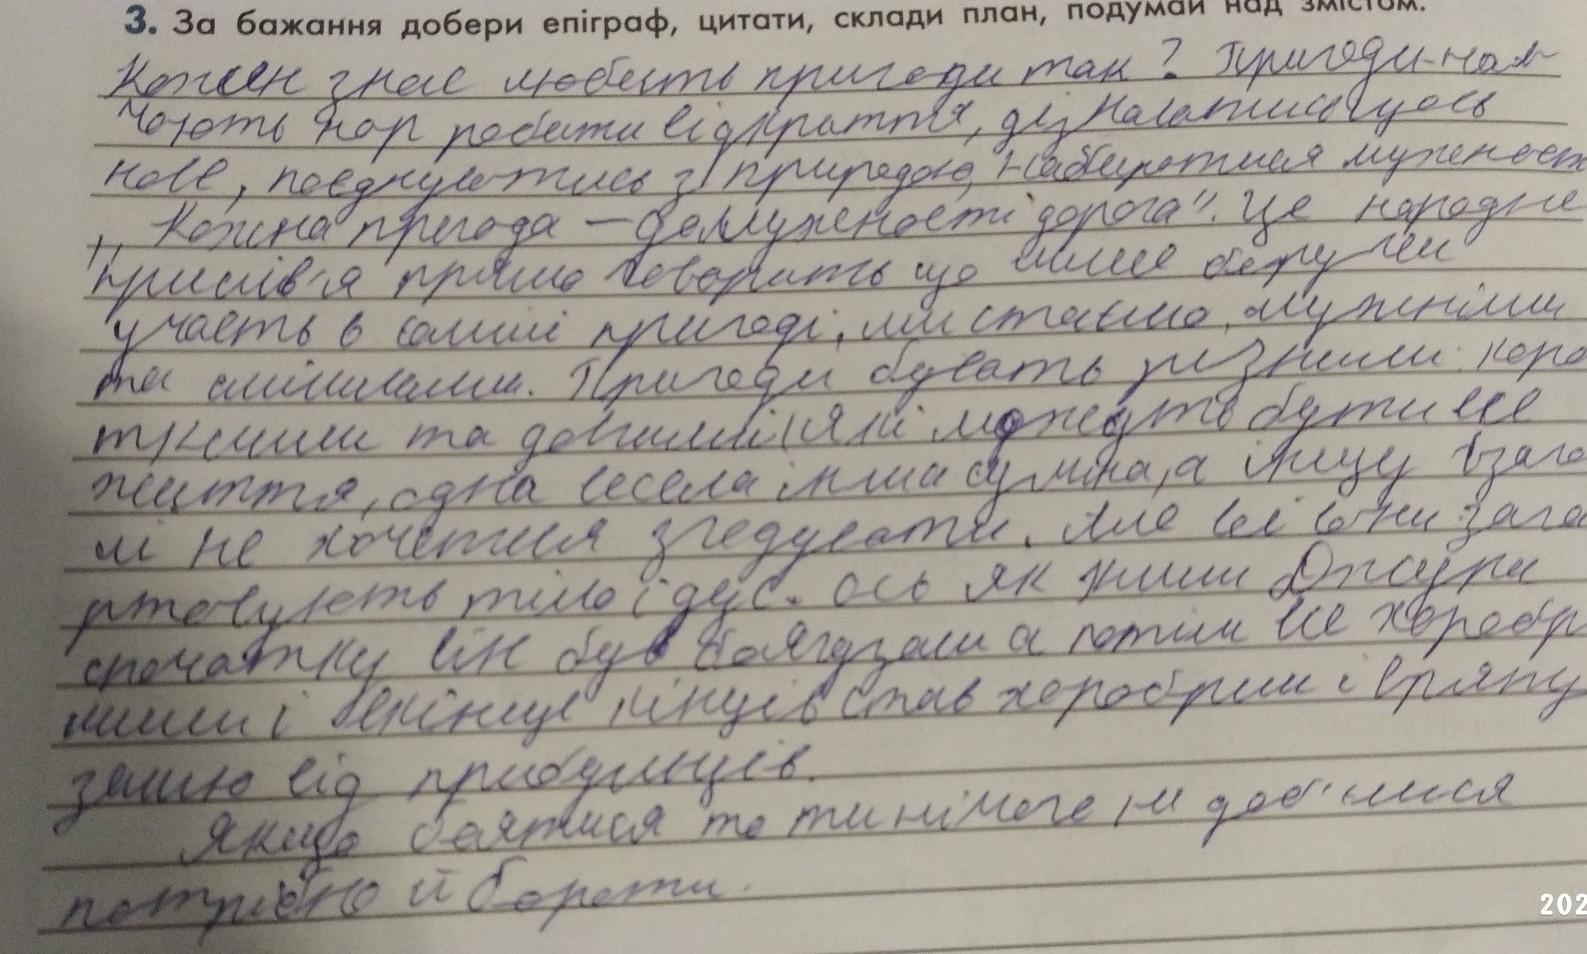 3. За бажання добери епіграф, цитати, склади план, подумай над змістом.
Кожен знає любить пригоди так? Пригоди нам
нар робити відкриття, дізнаватись щось
нове, поєднуватись з природою, набиратися мужност
„Кожна пригода – до мужності дорога". Це народне
прислів'я прямо говорить що лише беручи
участь в самій пригоді, ми стаємо мужніми
та сміливими. Пригоди бувать різними: коро
ткими та довгими які можуть бути все
життя, одна весела інша сумна, а іншу взага
лі не хочеться згадувати. Але всі вони зага
ртовують тіло і дух. Ось як жили Джури
спочатку він був боягузам а потім все хоробр
ішим і вкінце кінців став хоробрим і врятну
землю від прибульців.
Якщо боятися то ти нічого не доб'ешся
потрібно й бороти.
202